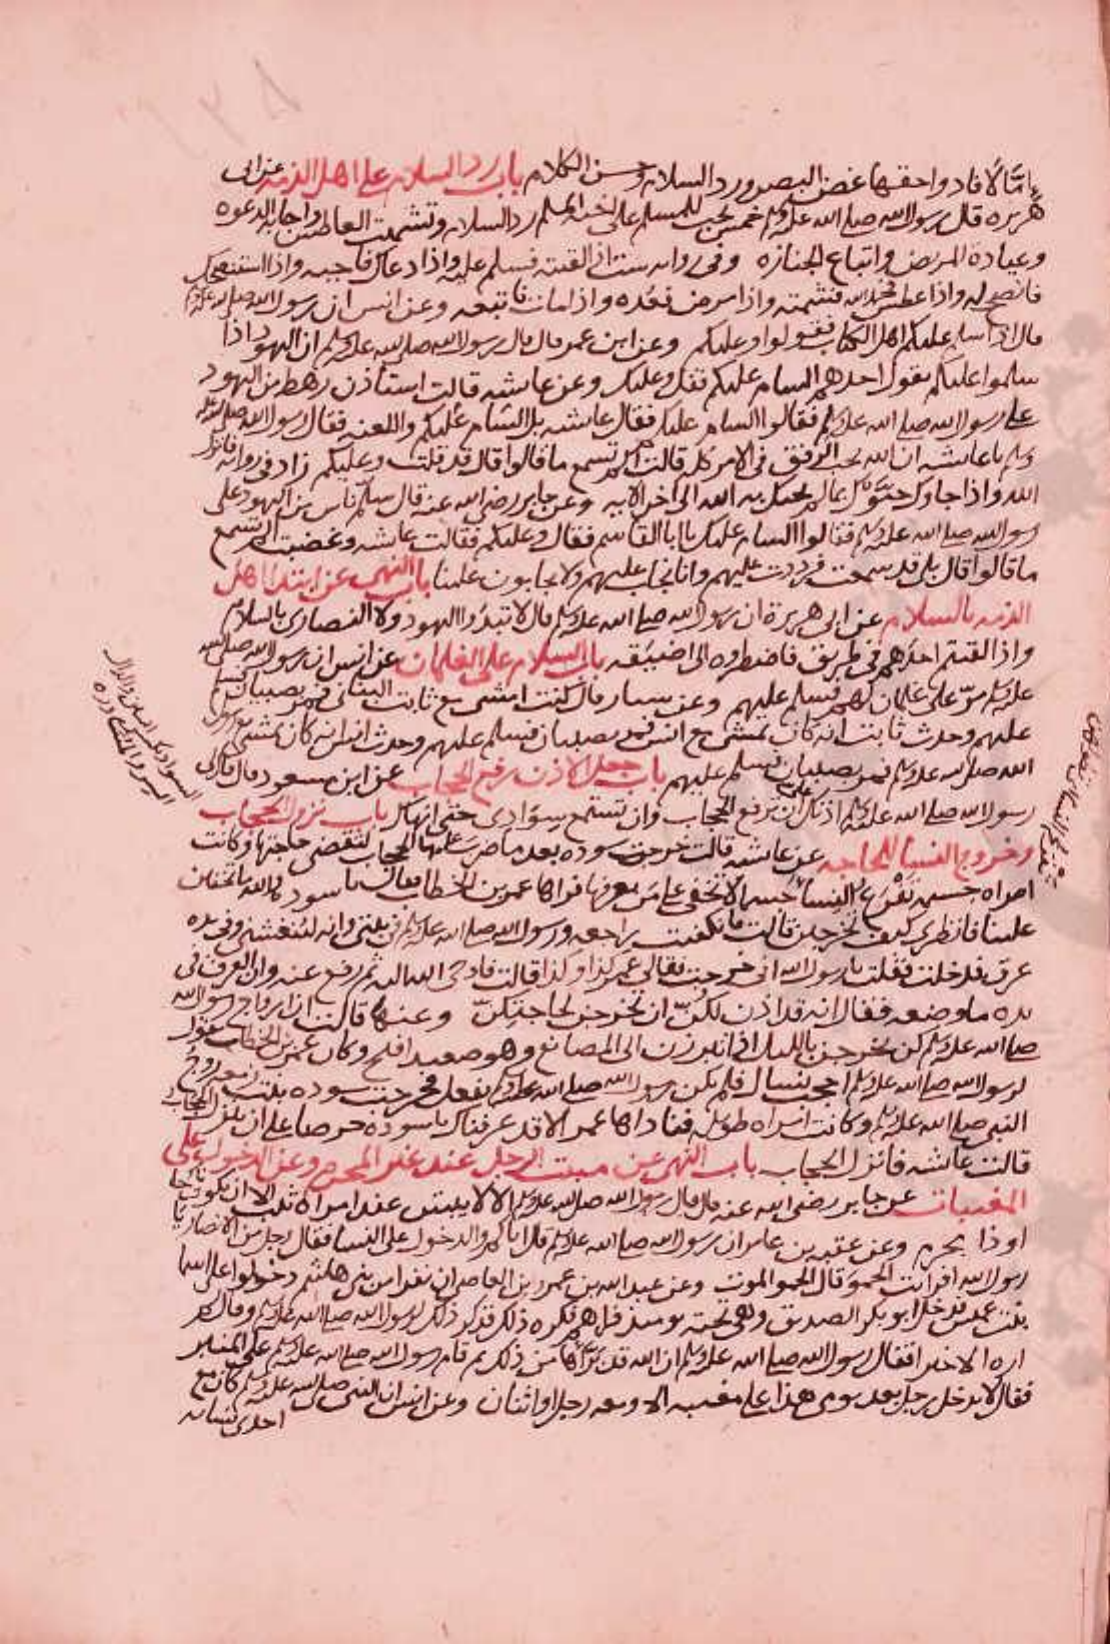 امّا لا فادوا حقها غض البصر ورد السلام وحسن الكلام باب رد السلام على اهل الذمه عن ابى
هريره قال رسول الله صلى الله عليه وسلم خمس تجب للمسلم على اخيه المسلم رد السلام وتشميت العاطس واجابه الدعوه
وعيادة المريض واتباع الجنازه وفى روايه ست اذا لقيته فسلم عليه واذا دعاك فاجبه واذا استنصحك
فانصح له واذا عطس فحمد الله فشمته واذا مرض فعده واذا مات فاتبعه وعن انس ان رسول الله صلى الله عليه وسلم
قال اذا سلم عليكم اهل الكتاب فقولوا وعليكم وعن ابن عمر قال قال رسول الله صلى الله عليه وسلم ان اليهود اذا
سلموا عليكم يقول احدهم السام عليكم فقل وعليك وعن عائشه قالت استاذن رهط من اليهود
على رسول الله صلى الله عليه وسلم فقالوا السام عليك فقال عائشه بل السّام عليكم واللعنه فقال رسول الله صلى الله عليه
وسلم يا عائشه ان الله يحب الرفق فى الامر كله قالت الم تسمع ما قالوا قال قد قلت وعليكم زاد فى روايه فانزل
الله واذا جاوك حيّوك بما لم يحيك به الله الى اخر الايه وعن جابر رضى الله عنه قال سلّم ناس من اليهود على
رسول الله صلى الله عليه وسلم فقالوا السام عليك يا ابا القاسم فقال وعليكم فقالت عائشه وغضبت الم تسمع
ما قالوا قال بلى قد سمعت فرددت عليهم وانا نجاب عليهم ولا يجابون علينا باب النهى عن ابتدا اهل
الذمه بالسلام عن ابى هريرة ان رسول الله صلى الله عليه وسلم قال لا تبدؤا اليهود ولا النصارى بالسلام
واذا لقيتم احدهم فى طريق فاضطروه الى اضيقه باب السلام على الغلمان عن انس ان رسول الله صلى الله
عليه وسلم مرّ على غلمان لهم فسلم عليهم وعن سيار قال كنت امشى مع ثابت البنانى فمر بصبيان فسلم
عليهم وحدث ثابت انه كان يمشى مع انس فمر بصبيان فسلم عليهم وحدث انس انه كان يمشى مع رسول
الله صلى الله عليه وسلم فمر بصبيان فسلم عليهم باب جعل الاذن رفع الحجاب عن ابن مسعود قال قال لى
رسول الله صلى الله عليه وسلم اذنك على ان يرفع الحجاب وان تستمع سوادى حتى انهاك باب نزول الحجاب
وخروج النسا للحاجه عن عائشه قالت خرجت سوده بعد ما ضرب عليها الحجاب لتقضى حاجتها وكانت
امراه جسيمه تفرع النسا جسما لا تخفى على من يعرفها فراها عمر بن الخطاب فقال يا سوده والله ما تخفين
علينا فانظرى كيف تخرجين قالت فانكفت راجعه ورسول الله صلى الله عليه وسلم فى بيتى وانه ليتعشى وفى يده
عرق فدخلت فقلت يا رسول الله انى خرجت فقال لى عمر كذا وكذا قالت فاوحى الله اليه ثم رفع عنه وان العرق فى
يده ما وضعه فقال انه قد اذن لكنّ ان تخرجن لحاجتكنّ وعنها قالت ان ازواج رسول الله
صلى الله عليه وسلم كن يخرجن بالليل اذا تبرزن الى المصانع وهو صعيد افيح وكان عمر بن الخطاب يقول
لرسول الله صلى الله عليه وسلم احجب نساك فلم يكن رسول الله صلى الله عليه وسلم يفعل فخرجت سوده بنت زمعه زوج
النبى صلى الله عليه وسلم وكانت امراه طويله فناداها عمر الا قد عرفناك يا سوده حرصا على ان ينزل الحجاب
قالت عائشه فانزل الحجاب باب النهى عن مبيت الرجل عند غير المحرم وعن الدخول على
المغيبات عن جابر رضى الله عنه قال قال رسول الله صلى الله عليه وسلم الا لا يبيتن عند امراه ثيب الا ان يكون ناكحا
او ذا محرم وعن عقبه بن عامر ان رسول الله صلى الله عليه وسلم قال اياكم والدخول على النسا فقال رجل من الانصار يا
رسول الله افرايت الحمو قال الحمو الموت وعن عبد الله بن عمرو بن العاص ان نفرا من بنى هاشم دخلوا على اسما
بنت عميس فدخل ابو بكر الصديق وهى تحته يومئذ فراهم فكره ذلك فذكر ذلك لرسول الله صلى الله عليه وسلم وقال لم
ار الا خيرا فقال رسول الله صلى الله عليه وسلم ان الله قد برّاها من ذلك ثم قام رسول الله صلى الله عليه وسلم على المنبر
فقال لا يدخل رجل بعد يومى هذا على مغيبه الا ومعه رجل او اثنان وعن انس ان النبى صلى الله عليه وسلم كان مع
احدى نسائه